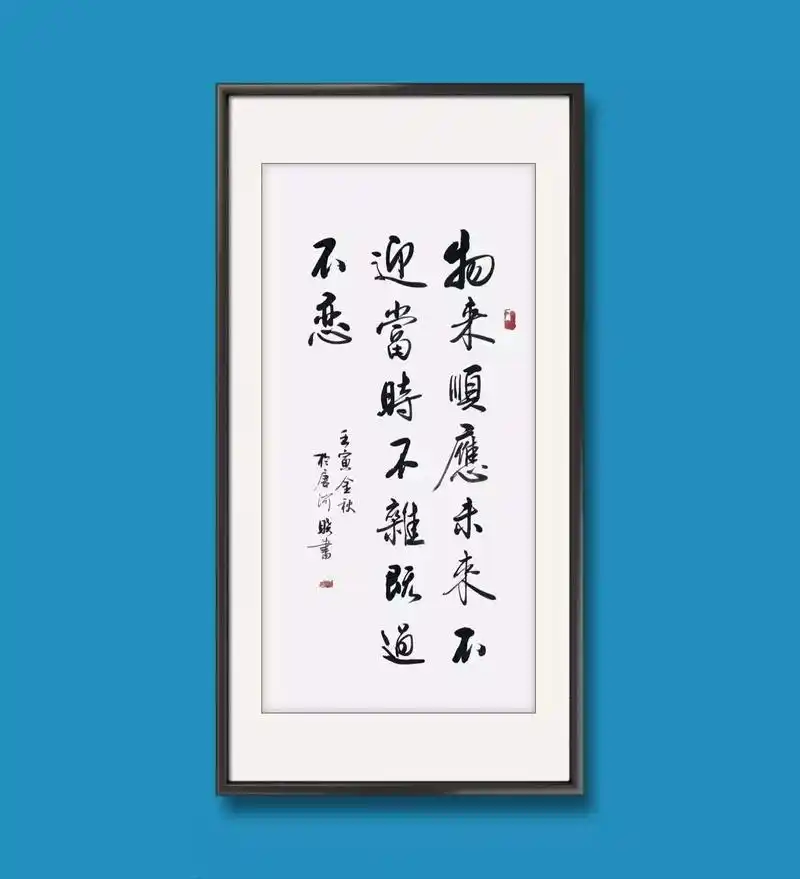 物来順應未来不
迎當時不雜既過
不恋
壬寅金秋
於唐河 書